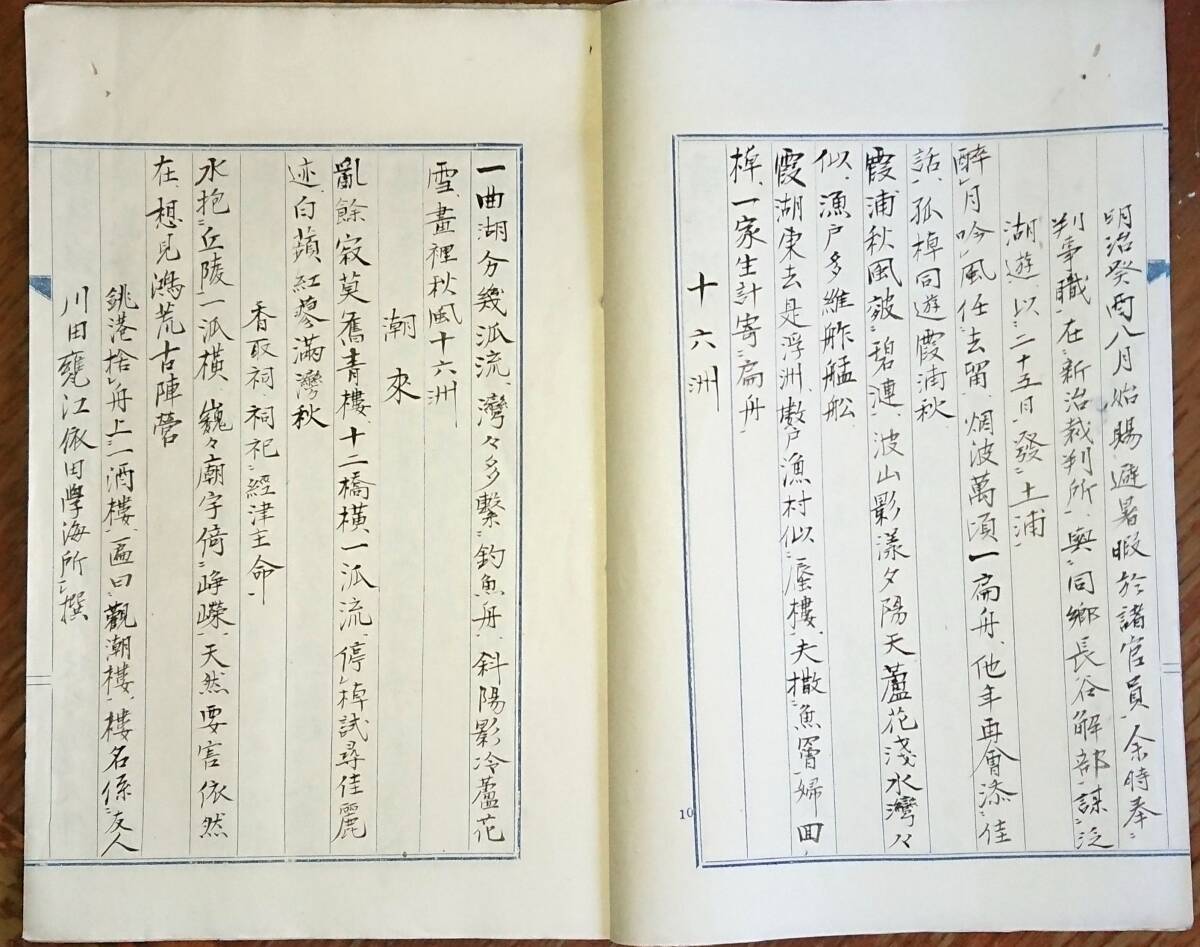 明治癸酉八月始賜避暑暇於諸官員余時奉
判事職在新治裁判所與同鄉長谷解部謀泛
湖遊以二十五日發土浦
醉月吟風任去留、烟波萬頃一扁舟、他年再會添佳
話、孤棹同遊霞浦秋
霞浦秋風皴碧漣、波山影漾夕陽天蘆花淺水灣々
似、漁戶多維舴艋舩
霞湖東去是浮洲、數戶漁村似蜃樓、夫撒魚罾婦囬
棹、一家生計寄扁舟
十六洲
10
一曲湖分幾派流、灣々多繫釣魚舟、斜陽影冷蘆花
雪、畫裡秋風十六洲
潮來
亂餘寂莫舊青樓、十二橋橫一派流、停棹試尋佳麗
迹、白蘋紅蓼滿灣秋
香取祠祠祀經津主命
水抱丘陵一派橫、巍々廟宇倚崢嶸、天然要害依然
在、想見鴻荒古陣營
銚港捨舟上一酒樓、匾曰觀潮樓、樓名係友人
川田甕江依田學海所撰